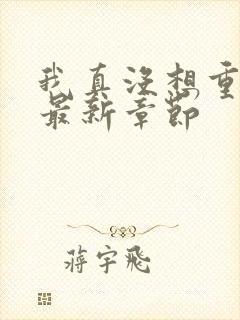 我真没想重
最新章节
蒋宇飞